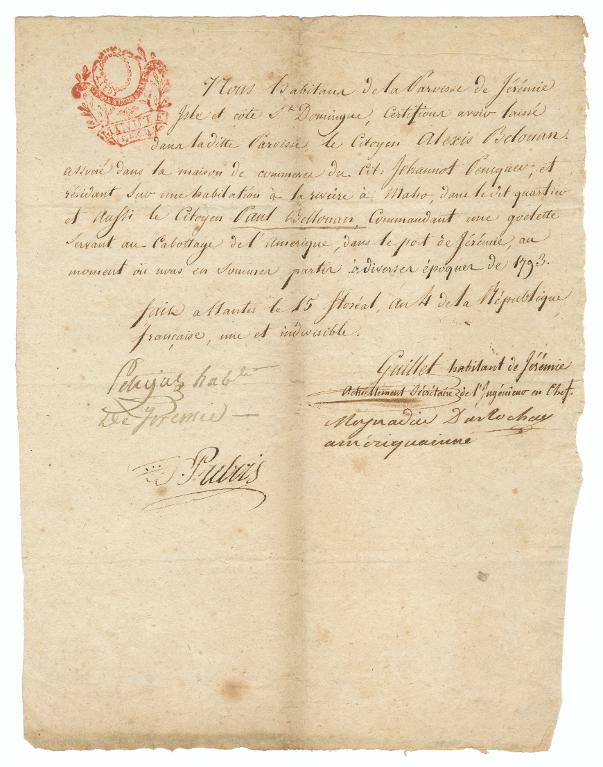 Nous habitans de la Parroisse de Jérémie
Isle et côte St. Domingue, Certifions avoir laissé
dans la ditte Parroisse le Citoyen Alexis Belouan
associé dans la maison de commerce du Cit: Johannot et
résidant sur une habitation à la rivière à Maho, dans le dit quartier
et aussi le Citoyen Paul Bellouan, Commandant une goelette
servant au Cabottage de l'amerique, dans le port de Jérémie, au
moment où nous en sommes partis à diverses époques de 1793.
fait a Nantes le 15 floréal, an 4 de la République
française, une et indivisible.
Guillet habitant de Jérémie
Actuellement Sécrétaire de l'Ingénieur en Chef.
habt.
De Jremie
amériquainne
Dubois